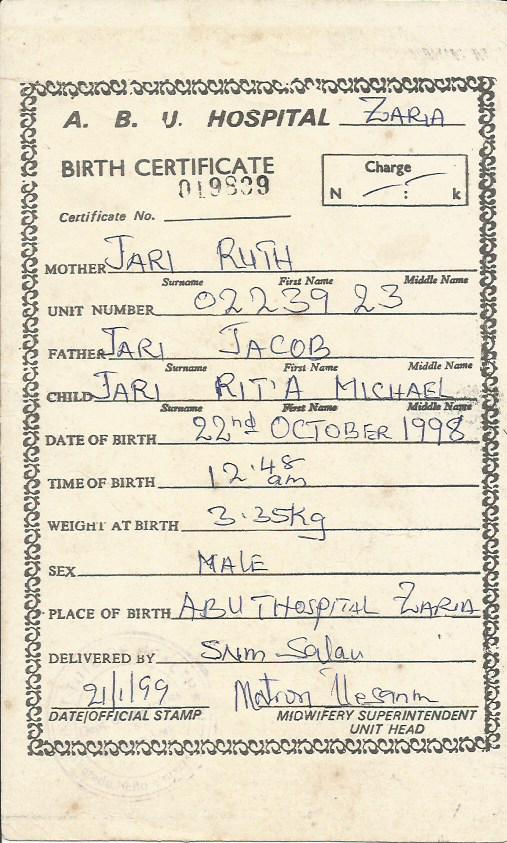 A. B. U. HOSPITAL ZARIA
BIRTH CERTIFICATE
Charge
N : k
019809
Certificate No.
MOTHER JARI RUTH
Surname First Name Middle Name
UNIT NUMBER 02239 23
FATHER JARI JACOB
Surname First Name Middle Name
CHILD JARI RIT'A MICHAEL
Surname First Name Middle Name
DATE OF BIRTH 22nd OCTOBER 1998
TIME OF BIRTH 12.48 am
WEIGHT AT BIRTH 3.35kg
SEX MALE
PLACE OF BIRTH ABUTHOSPITAL ZARIA
DELIVERED BY Salau
21/1/99 Matron
DATE/OFFICIAL STAMP MIDWIFERY SUPERINTENDENT
UNIT HEAD